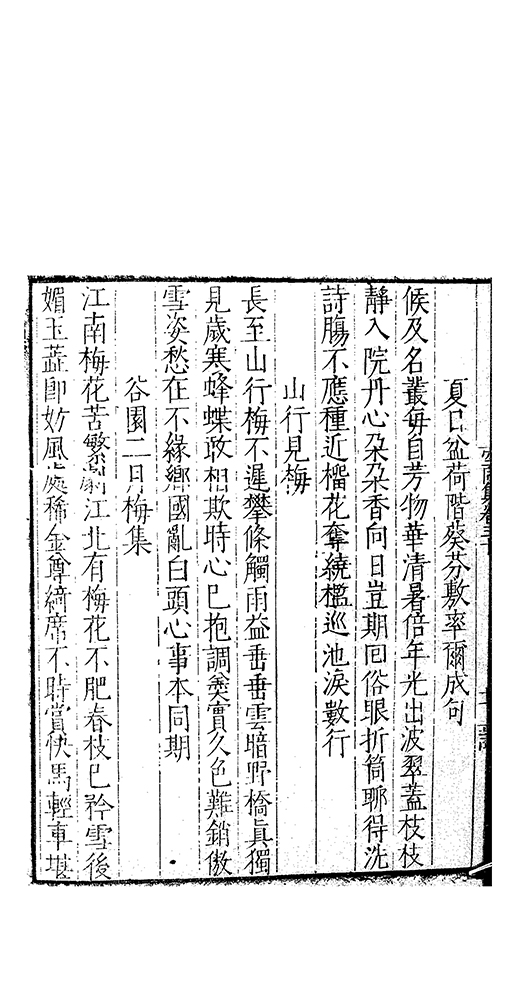 夏日盆荷階葵芬敷率爾成句
候及名叢每自芳物華清暑倍年光出波翠蓋枝枝
靜入院丹心朶朶香向日豈期囘俗眼折筒聊得洗
詩腸不應種近榴花奪繞檻巡池淚數行
山行見梅
長至山行梅不遲攀條觸雨益垂垂雲暗野橋眞獨
見歲寒蜂蝶敢相欺時心已抱調羹實久色難銷傲
雪姿愁在不緣鄉國亂白頭心事本同期
谷園二月梅集
江南梅花苦繁劇江北有梅花不肥春枝已矜雪後
媚玉蘂卽妨風處稀金尊綺席不時賞快馬輕車堪